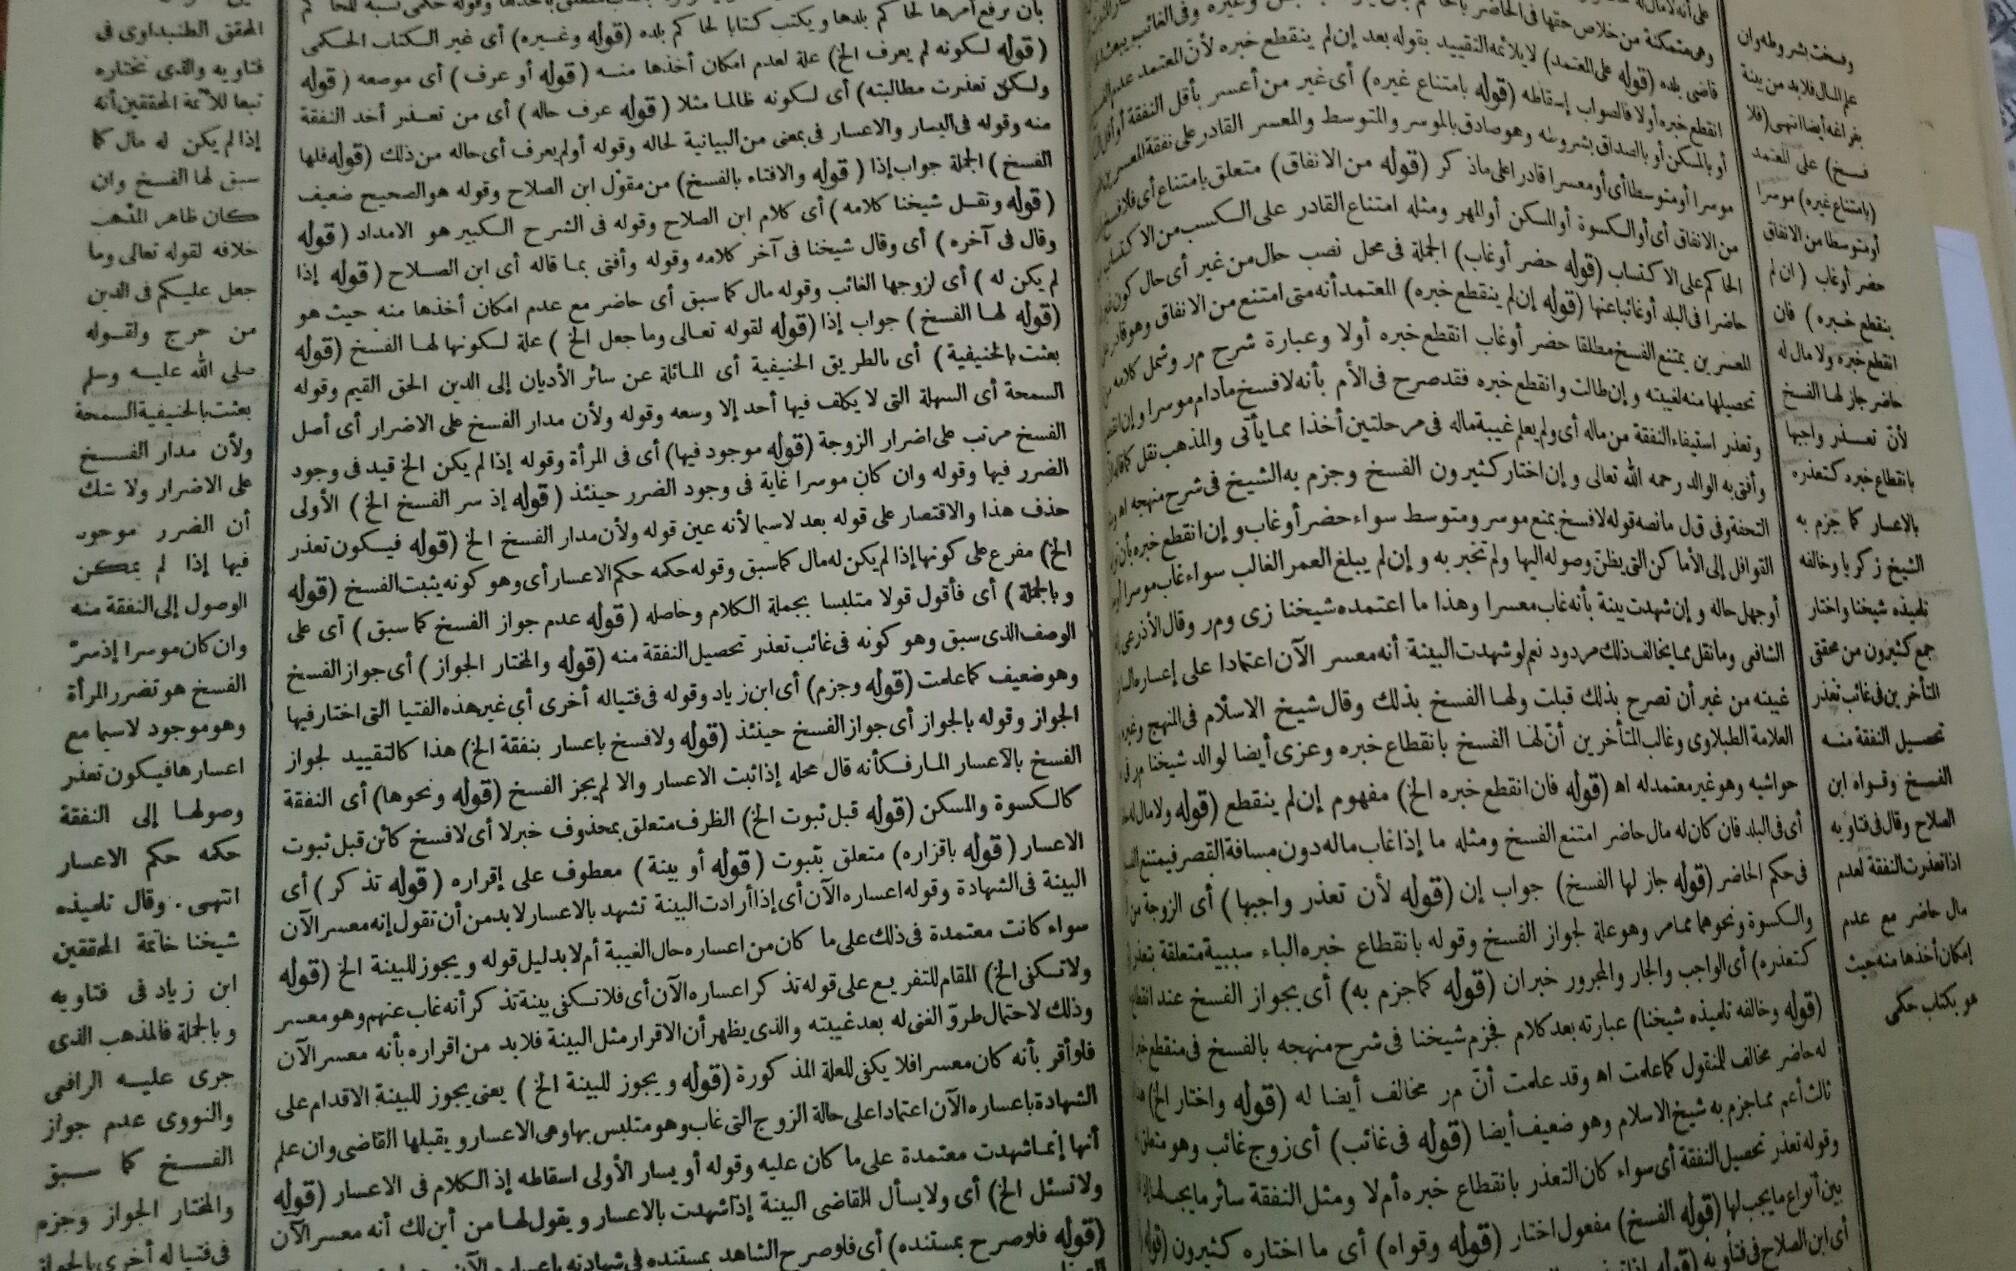 وفسخت بشروطه وان
علم المال فلابد من بينة
بفراغه أيضا انتهى (فلا
فسخ) على المعتمد
(بامتناع غيره) موسرا
أو متوسطا من الانفاق
حضر أو غاب (ان لم
ينقطع خبره) فان
انقطع خبره ولا مال له
حاضر جاز لها الفسخ
لأن تعذر واجبها
بانقطاع خبره كتعذره
بالاعسار كما جزم به
الشيخ زكريا وخالفه
تلميذه شيخنا واختار
جمع كثيرون من محققى
المتأخرين فى غائب تعذر
تحصيل النفقة منه
الفسخ وقواه ابن
الصلاح وقال فى فتاويه
اذا تعذرت النفقة لعدم
مال حاضر مع عدم
إمكان أخذها منه حيث
هو بكتاب حكمى
وهى متمكنة من خلاص حقها فى الحاضر
قاضى بلده (قوله على المعتمد) لا يلائمه التقييد بقوله بعد إن لم ينقطع خبره لأن المعتمد عدم الفسخ
انقطع خبره أولا فالصواب إسقاطه (قوله بامتناع غيره) أى غير من أعسر بأقل النفقة أو أقل
أو بالمسكن أو بالصداق بشروطه وهو صادق بالموسر والمتوسط والمعسر القادر على نفقة المعسرين
موسرا أو متوسطا أى أو معسرا قادرا على ما ذكر (قوله من الانفاق) متعلق بامتناع أى فلا فسخ
من الانفاق أى أو الكسوة أو المسكن أو المهر ومثله امتناع القادر على الكسب من الاكتساب
الحاكم على الاكتساب (قوله حضر أو غاب) الجملة فى محل نصب حال من غير أى حال كون غيره
حاضرا فى البلد أو غائبا عنها (قوله إن لم ينقطع خبره) المعتمد أنه متى امتنع من الانفاق وهو قادر على
المعسرين يمتنع الفسخ مطلقا حضر أو غاب انقطع خبره أولا وعبارة شرح م ر وشمل كلامه من
تحصيلها منه لغيبته وإن طالت وانقطع خبره فقد صرح فى الأم بأنه لا فسخ مادام موسرا وإن انقطع
وتعذر استيفاء النفقة من ماله أى ولم يعلم غيبة ماله فى مرحلتين أخذا مما يأتى والمذهب نقل كما قاله
وأفتى به الوالد رحمه الله تعالى وإن اختار كثيرون الفسخ وجزم به الشيخ فى شرح منهجه اه
التحفة وفى ق ل ما نصه قوله لا فسخ بمنع موسر ومتوسط سواء حضر أو غاب وإن انقطع خبره بأن
القوافل إلى الأماكن التى يظن وصوله اليها ولم تخبر به وإن لم يبلغ العمر الغالب سواء غاب موسرا
أو جهل حاله وإن شهدت بينة بأنه غاب معسرا وهذا ما اعتمده شيخنا زى و م ر وقال الأذرعى
الشافعى وما نقل مما يخالف ذلك مردود نعم لو شهدت البينة أنه معسر الآن اعتمادا على إعساره
غيبته من غير أن تصرح بذلك قبلت ولها الفسخ بذلك وقال شيخ الاسلام فى المنهج وغيره
العلامة الطبلاوى وغالب المتأخرين أن لها الفسخ بانقطاع خبره وعزى أيضا لوالد شيخنا م ر فى
حواشيه وهو غير معتمد له اه (قوله فان انقطع خبره الخ) مفهوم إن لم ينقطع (قوله ولا مال له
أى فى البلد فان كان له مال حاضر امتنع الفسخ ومثله ما إذا غاب ماله دون مسافة القصر فيمتنع
فى حكم الحاضر (قوله جاز لها الفسخ) جواب إن (قوله لأن تعذر واجبها) أى الزوجة
والكسوة ونحوهما مما مر وهو علة لجواز الفسخ وقوله بانقطاع خبره الباء سببية متعلقة بتعذر
كتعذره) أى الواجب والجار والمجرور خبر ان (قوله كما جزم به) أى بجواز الفسخ عند انقطاع
(قوله وخالفه تلميذه شيخنا) عبارته بعد كلام فجزم شيخنا فى شرح منهجه بالفسخ فى منقطع خبر
له حاضر مخالف للمنقول كما علمت اه وقد علمت أن م ر مخالف أيضا له (قوله واختار الخ)
ثالث أعم مما جزم به شيخ الاسلام وهو ضعيف أيضا (قوله فى غائب) أى زوج غائب وهو متعلق
وقوله تعذر تحصيل النفقة أى سواء كان التعذر بانقطاع خبره أم لا ومثل النفقة سائر ما يجب لها
بين أنواع ما يجب لها (قوله الفسخ) مفعول اختار (قوله وقواه) أى ما اختاره كثيرون (قوله
أى ابن الصلاح فى فتاويه
بأن ترفع أمرها لحاكم بلدها ويكتب كتابا لحاكم بلده (قوله وغيره) أى غير الكتاب الحكمى
(قوله لكونه لم يعرف الخ) علة لعدم امكان أخذها منه (قوله أو عرف) أى موضعه (قوله
ولكن تعذرت مطالبته) أى لكونه ظالما مثلا (قوله عرف حاله) أى من تعذر أخذ النفقة
منه وقوله فى اليسار والاعسار فى بمعنى من البيانية لحاله وقوله أولم يعرف أى حاله من ذلك (قوله فلها
الفسخ) الجملة جواب إذا (قوله والافتاء بالفسخ) من مقول ابن الصلاح وقوله هو الصحيح ضعيف
(قوله ونقل شيخنا كلامه) أى كلام ابن الصلاح وقوله فى الشرح الكبير هو الامداد (قوله
وقال فى آخره) أى وقال شيخنا فى آخر كلامه وقوله وأفتى بما قاله أى ابن الصلاح (قوله إذا
لم يكن له) أى لزوجها الغائب وقوله مال كما سبق أى حاضر مع عدم امكان أخذها منه حيث هو
(قوله لها الفسخ) جواب إذا (قوله لقوله تعالى وما جعل الخ) علة لكونها لها الفسخ (قوله
بعثت بالحنيفية) أى بالطريق الحنيفية أى المائلة عن سائر الأديان إلى الدين الحق القيم وقوله
السمحة أى السهلة التى لا يكلف فيها أحد إلا وسعه وقوله ولأن مدار الفسخ على الاضرار أى أصل
الفسخ مرتب على اضرار الزوجة (قوله موجود فيها) أى فى المرأة وقوله إذا لم يكن الخ قيد فى وجود
الضرر فيها وقوله وان كان موسرا غاية فى وجود الضرر حينئذ (قوله إذ سر الفسخ الخ) الأولى
حذف هذا والاقتصار على قوله بعد لاسيما لأنه عين قوله ولأن مدار الفسخ الخ (قوله فيكون تعذر
الخ) مفرع على كونها إذا لم يكن له مال كما سبق وقوله حكمه حكم الاعسار أى وهو كونه يثبت الفسخ (قوله
وبالجملة) أى فأقول قولا متلبسا بجملة الكلام وحاصله (قوله عدم جواز الفسخ كما سبق) أى على
الوصف الذى سبق وهو كونه فى غائب تعذر تحصيل النفقة منه (قوله والمختار الجواز) أى جواز الفسخ
وهو ضعيف كما علمت (قوله وجزم) أى ابن زياد وقوله فى فتياله أخرى أى غير هذه الفتيا التى اختار فيها
الجواز وقوله بالجواز أى جواز الفسخ حينئذ (قوله ولا فسخ باعسار بنفقة الخ) هذا كالتقييد لجواز
الفسخ بالاعسار المار فكأنه قال محله إذا ثبت الاعسار والا لم يجز الفسخ (قوله ونحوها) أى النفقة
كالكسوة والمسكن (قوله قبل ثبوت الخ) الظرف متعلق بمحذوف خبر لا أى لا فسخ كائن قبل ثبوت
الاعسار (قوله باقراره) متعلق بثبوت (قوله أو بينة) معطوف على إقراره (قوله تذكر) أى
البينة فى الشهادة وقوله اعساره الآن أى إذا أرادت البينة تشهد بالاعسار لابد من أن تقول إنه معسر الآن
سواء كانت معتمدة فى ذلك على ما كان من اعساره حال الغيبة أم لا بدليل قوله ويجوز للبينة الخ (قوله
ولا تكفى الخ) المقام للتفريع على قوله تذكر اعساره الآن أى فلا تكفى بينة تذكر أنه غاب عنهم وهو معسر
وذلك لاحتمال طرو الغنى له بعد غيبته والذى يظهر أن الاقرار مثل البينة فلابد من اقراره بأنه معسر الآن
فلو أقر بأنه كان معسرا فلا يكفى للعلة المذكورة (قوله ويجوز للبينة الخ) يعنى يجوز للبينة الاقدام على
الشهادة باعساره الآن اعتمادا على حالة الزوج التى غاب وهو متلبس بها وهى الاعسار ويقبلها القاضى وان علم
أنها إنما شهدت معتمدة على ما كان عليه وقوله أو يسار الأولى اسقاطه إذ الكلام فى الاعسار (قوله
ولا تسئل الخ) أى ولا يسأل القاضى البينة إذا شهدت بالاعسار ويقول لها من أين لك أنه معسر الآن
(قوله فلو صرح بمستنده) أى فلو صرح الشاهد بمستنده فى شهادته باعساره الآن
المحقق الطنبداوى فى
فتاويه والذى نختاره
تبعا للأئمة المحققين أنه
إذا لم يكن له مال كما
سبق لها الفسخ وان
كان ظاهر المذهب
خلافه لقوله تعالى وما
جعل عليكم فى الدين
من حرج ولقوله
صلى الله عليه وسلم
بعثت بالحنيفية السمحة
ولأن مدار الفسخ
على الاضرار ولا شك
أن الضرر موجود
فيها إذا لم يمكن
الوصول إلى النفقة منه
وان كان موسرا إذ سر
الفسخ هو تضرر المرأة
وهو موجود لاسيما مع
اعسارها فيكون تعذر
وصولها إلى النفقة
حكمه حكم الاعسار
انتهى. وقال تلميذه
شيخنا خاتمة المحققين
ابن زياد فى فتاويه
وبالجملة فالمذهب الذى
جرى عليه الرافعى
والنووى عدم جواز
الفسخ كما سبق
والمختار الجواز وجزم
فى فتياله أخرى بالجواز